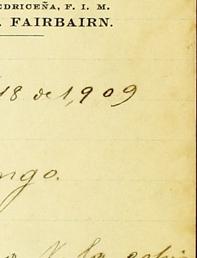 EDRICEÑA, F. I. M.
. FAIRBAIRN.
18 de 1,909
ngo.
la